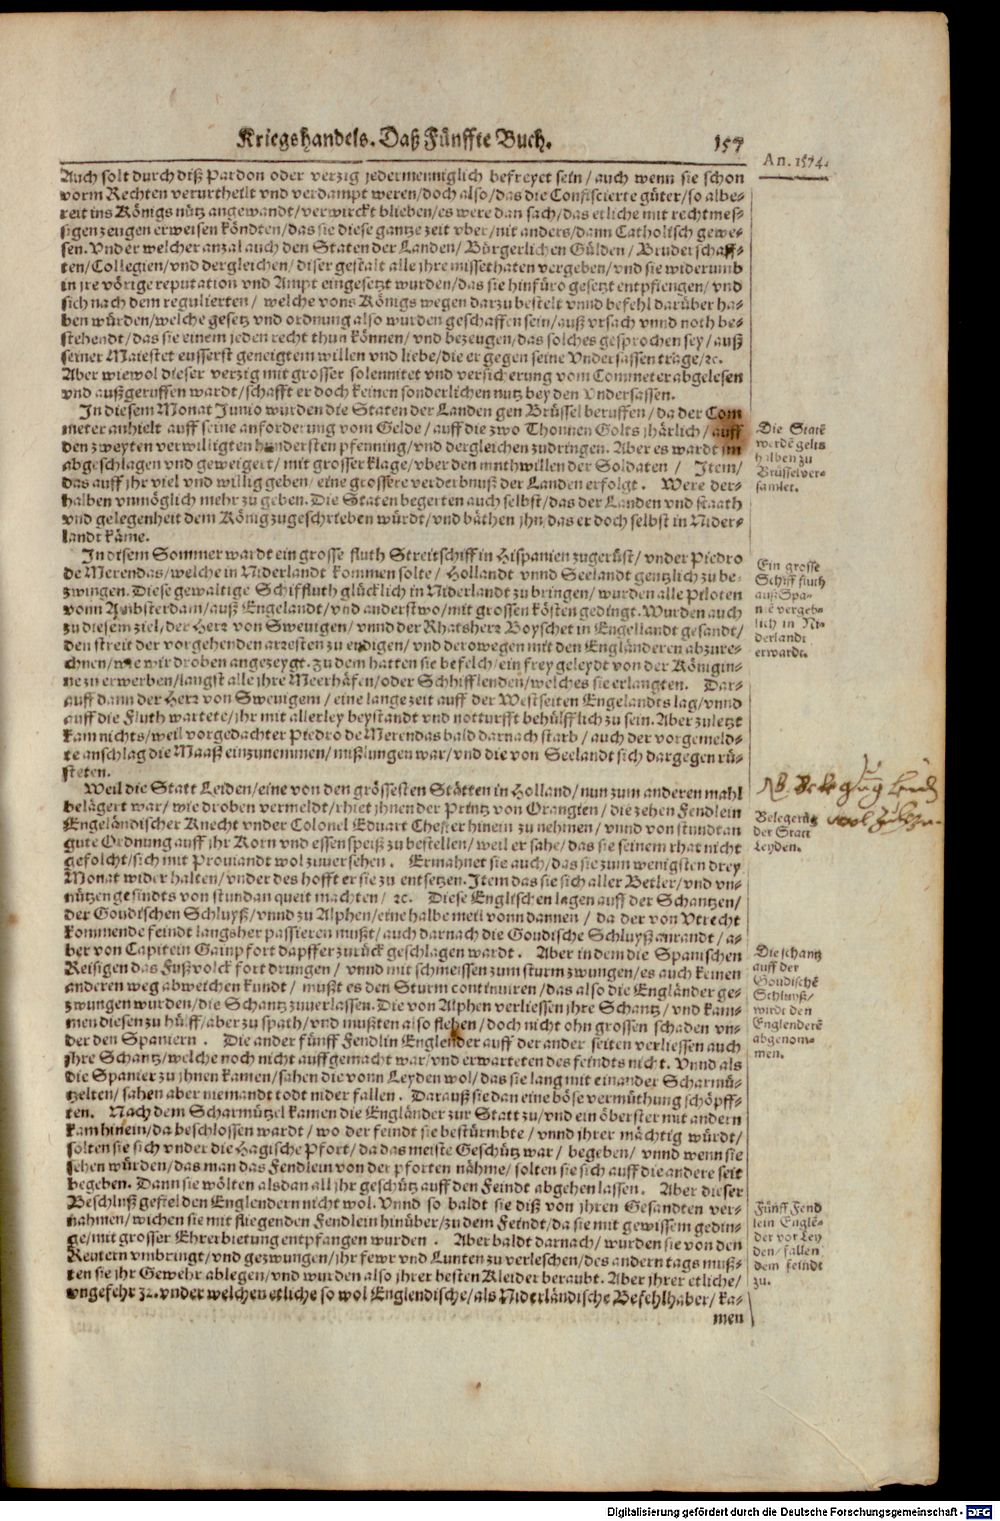 Kriegshandels. Daß Fünffte Buch. 157
An. 1574.
Auch solt durch diß Pardon oder verzig jedermenniglich befreyet sein / auch wenn sie schon
vorm Rechten verurtheilt vnd verdampt weren / doch also / das die Confiscierte güter / so albe-
reit ins Königs nütz angewandt / verwirckt blieben / es were dan sach / das etliche mit rechtmes-
sigen zeugen erweisen köndten / das sie diese gantze zeit vber / nit anders / dann Catholisch gewe-
sen. Vnder welcher anzal auch den Staten der Landen / Bürgerlichen Gülden / Bruderschaff-
ten / Collegien / vnd dergleichen / diser gestalt alle jhre missethaten vergeben / vnd sie widerumb
in jre vörige reputation vnd Ampt eingesetzt wurden / das sie hinfüro gesetzt entpfiengen / vnd
sich nach dem regulierten / welche vons Königs wegen darzu bestelt vnnd befehl darüber ha-
ben würden / welche gesetz vnd ordnung also wurden geschaffen sein / auß vrsach vnnd noth be-
stehendt / das sie einem jeden recht thun können / vnd bezeugen / das solches gesprochen sey / auß
seiner Maiestet eusserst geneigtem willen vnd liebe / die er gegen seine Vndersassen trage / ꝛc.
Aber wiewol dieser verzig mit grosser solennitet vnd versicherung vom Commeter abgelesen
vnd außgeruffen wardt / schafft er doch keinen sonderlichen nutz bey den Vndersassen.
In diesem Monat Junio wurden die Staten der Landen gen Brüssel beruffen / da der Com
meter anhielt auff seine anforderung vom Gelde / auff die zwo Thonnen Golts jhärlich / auff
den zweyten verwilligten hundersten pfenning / vnd dergleichen zudringen. Aber es wardt jm
abgeschlagen vnd geweigert / mit grosser klage / vber den muthwillen der Soldaten / Item /
das auff jhr viel vnd willig geben / eine grossere verderbnuß der Landen erfolgt. Were der-
halben vnmöglich mehr zu geben. Die Staten begerten auch selbst / das der Landen vnd staath
vnd gelegenheit dem König zugeschrieben würdt / vnd bäthen jhn / das er doch selbst in Nider-
landt käme.
Die Statē
werdē gelts
halben zu
Brüssel ver-
samlet.
In disem Sommer wardt ein grosse fluth Streitschiff in Hispanien zugerüst / vnder Piedro
de Merendas / welche in Niderlandt kommen solte / Hollandt vnnd Seelandt gentzlich zu be-
zwingen. Diese gewaltige Schiffluth glücklich in Niderlandt zu bringen / wurden alle Piloten
vonn Ambsterdam / auß Engelandt / vnd anderstwo / mit grossen kösten gedingt. Wurden auch
zu diesem ziel, der Herr von Sweuigen / vnnd der Rhatsherr Boyschet in Engellandt gesandt /
den streit der vorgehenden arresten zu endigen / vnd derowegen mit den Engländeren abzure-
chnen / wie wir droben angezeygt. Zu dem hatten sie befelch / ein frey geleydt von der Königin-
ne zu erwerben / langst alle jhre Meerhäfen / oder Schhifflenden / welches sie erlangten. Dar-
auff dann der Herr von Sweuigem / eine lange zeit auff der Westseiten Engelandts lag / vnnd
auff die Fluth wartete / jhr mit allerley beystandt vnd notturfft behülfflich zu sein. Aber zuletzt
kam nichts / weil vorgedachter Piedro de Merendas bald darnach starb / auch der vorgemeld-
te anschlag die Maaß einzunemmen / mißlungen war / vnd die von Seelandt sich dargegen rü-
steten.
Ein grosse
Schiff fluth
auß Spa-
niē vergeb-
lich in Ni-
derlandt
erwardt.
Weil die Statt Leiden / eine von den grössesten Stätten in Holland / nun zum anderen mahl
belägert war / wie droben vermeldt / rhiet jhnen der Printz von Orangien / die zehen Fendlein
Engeländischer Knecht vnder Colonel Eduart Chester hinein zu nehmen / vnnd von stundt an
gute Ordnung auff jhr Korn vnd essenspeiß zu bestellen / weil er sahe / das sie seinem rhat nicht
gefolcht / sich mit Prouiandt wol zuuersehen. Ermahnet sie auch / das sie zum wenigsten drey
Monat wider halten / vnder des hofft er sie zu entsetzen. Item das sie sich aller Betler / vnd vn-
nützen gesindts von stundan queit machten / ꝛc. Diese Englischen lagen auff der Schantzen /
der Goudischen Schluyß / vnnd zu Alphen / eine halbe meil vonn dannen / da der von Vtrecht
kommende feindt langsher passieren mußt / auch darnach die Goudische Schluyß anrandt / a-
ber von Capitein Gainpfort dapffer zurück geschlagen wardt. Aber in dem die Spanischen
Reisigen das Fußvolck fort drungen / vnnd mit schmeissen zum sturm zwungen / es auch keinen
anderen weg abweichen kundt / mußt es den Sturm continuiren / das also die Engländer ge-
zwungen wurden / die Schantz zuuerlassen. Die von Alphen verliessen jhre Schantz / vnd kam-
men diesen zu hülff / aber zu spath / vnd mußten also flehen / doch nicht ohn grossen schaden vn-
der den Spaniern. Die ander fünff Fendlin Englender auff der ander seiten verliessen auch
jhre Schantz / welche noch nicht auffgemacht war / vnd erwarteten des feindts nicht. Vnnd als
die Spanier zu jhnen kamen / sahen die vonn Leyden wol / das sie lang mit einander Scharmü-
tzelten / sahen aber niemandt todt nider fallen. Darauß sie dan eine böse vermüthung schöpff-
ten. Nach dem Scharmützel kamen die Engländer zur Statt zu / vnd ein öberster mit andern
kam hinein / da beschlossen wardt / wo der feindt sie bestürmbte / vnnd jhrer mächtig würdt /
solten sie sich vnder die Hagische Pfort / da das meiste Geschütz war / begeben / vnnd wenn sie
sehen würden / das man das Fendlein von der pforten nähme / solten sie sich auff die andere seit
begeben. Dann sie wölten alsdan all jhr geschütz auff den Feindt abgehen lassen. Aber dieser
Beschluß gefiel den Englendern nicht wol. Vnnd so baldt sie diß von jhren Gesandten ver-
nahmen / wichen sie mit fliegenden Fendlein hinüber / zu dem Feindt / da sie mit gewissem gedin-
ge / mit grosser Ehrerbietung entpfangen wurden. Aber baldt darnach / wurden sie von den
Reutern vmbringt / vnd gezwungen / jhr fewr vnd Lunten zu verleschen / des andern tags muß-
ten sie jhr Gewehr ablegen / vnd wurden also jhrer besten Kleider beraubt. Aber jhrer etliche /
vngefehr 32. vnder welchen etliche so wol Englendische / als Niderländische Befehlhaber / ka-
men
Belegerūg
der Statt
Leyden.
Die schantz
auff der
Goudischē
Schluyß /
wirdt den
Englenderē
abgenom-
men.
Fünff Fend
lein Englē-
der vor Ley
den / fallen
dem feindt
zu.
Digitalisierung gefördert durch die Deutsche Forschungsgemeinschaft - DFG